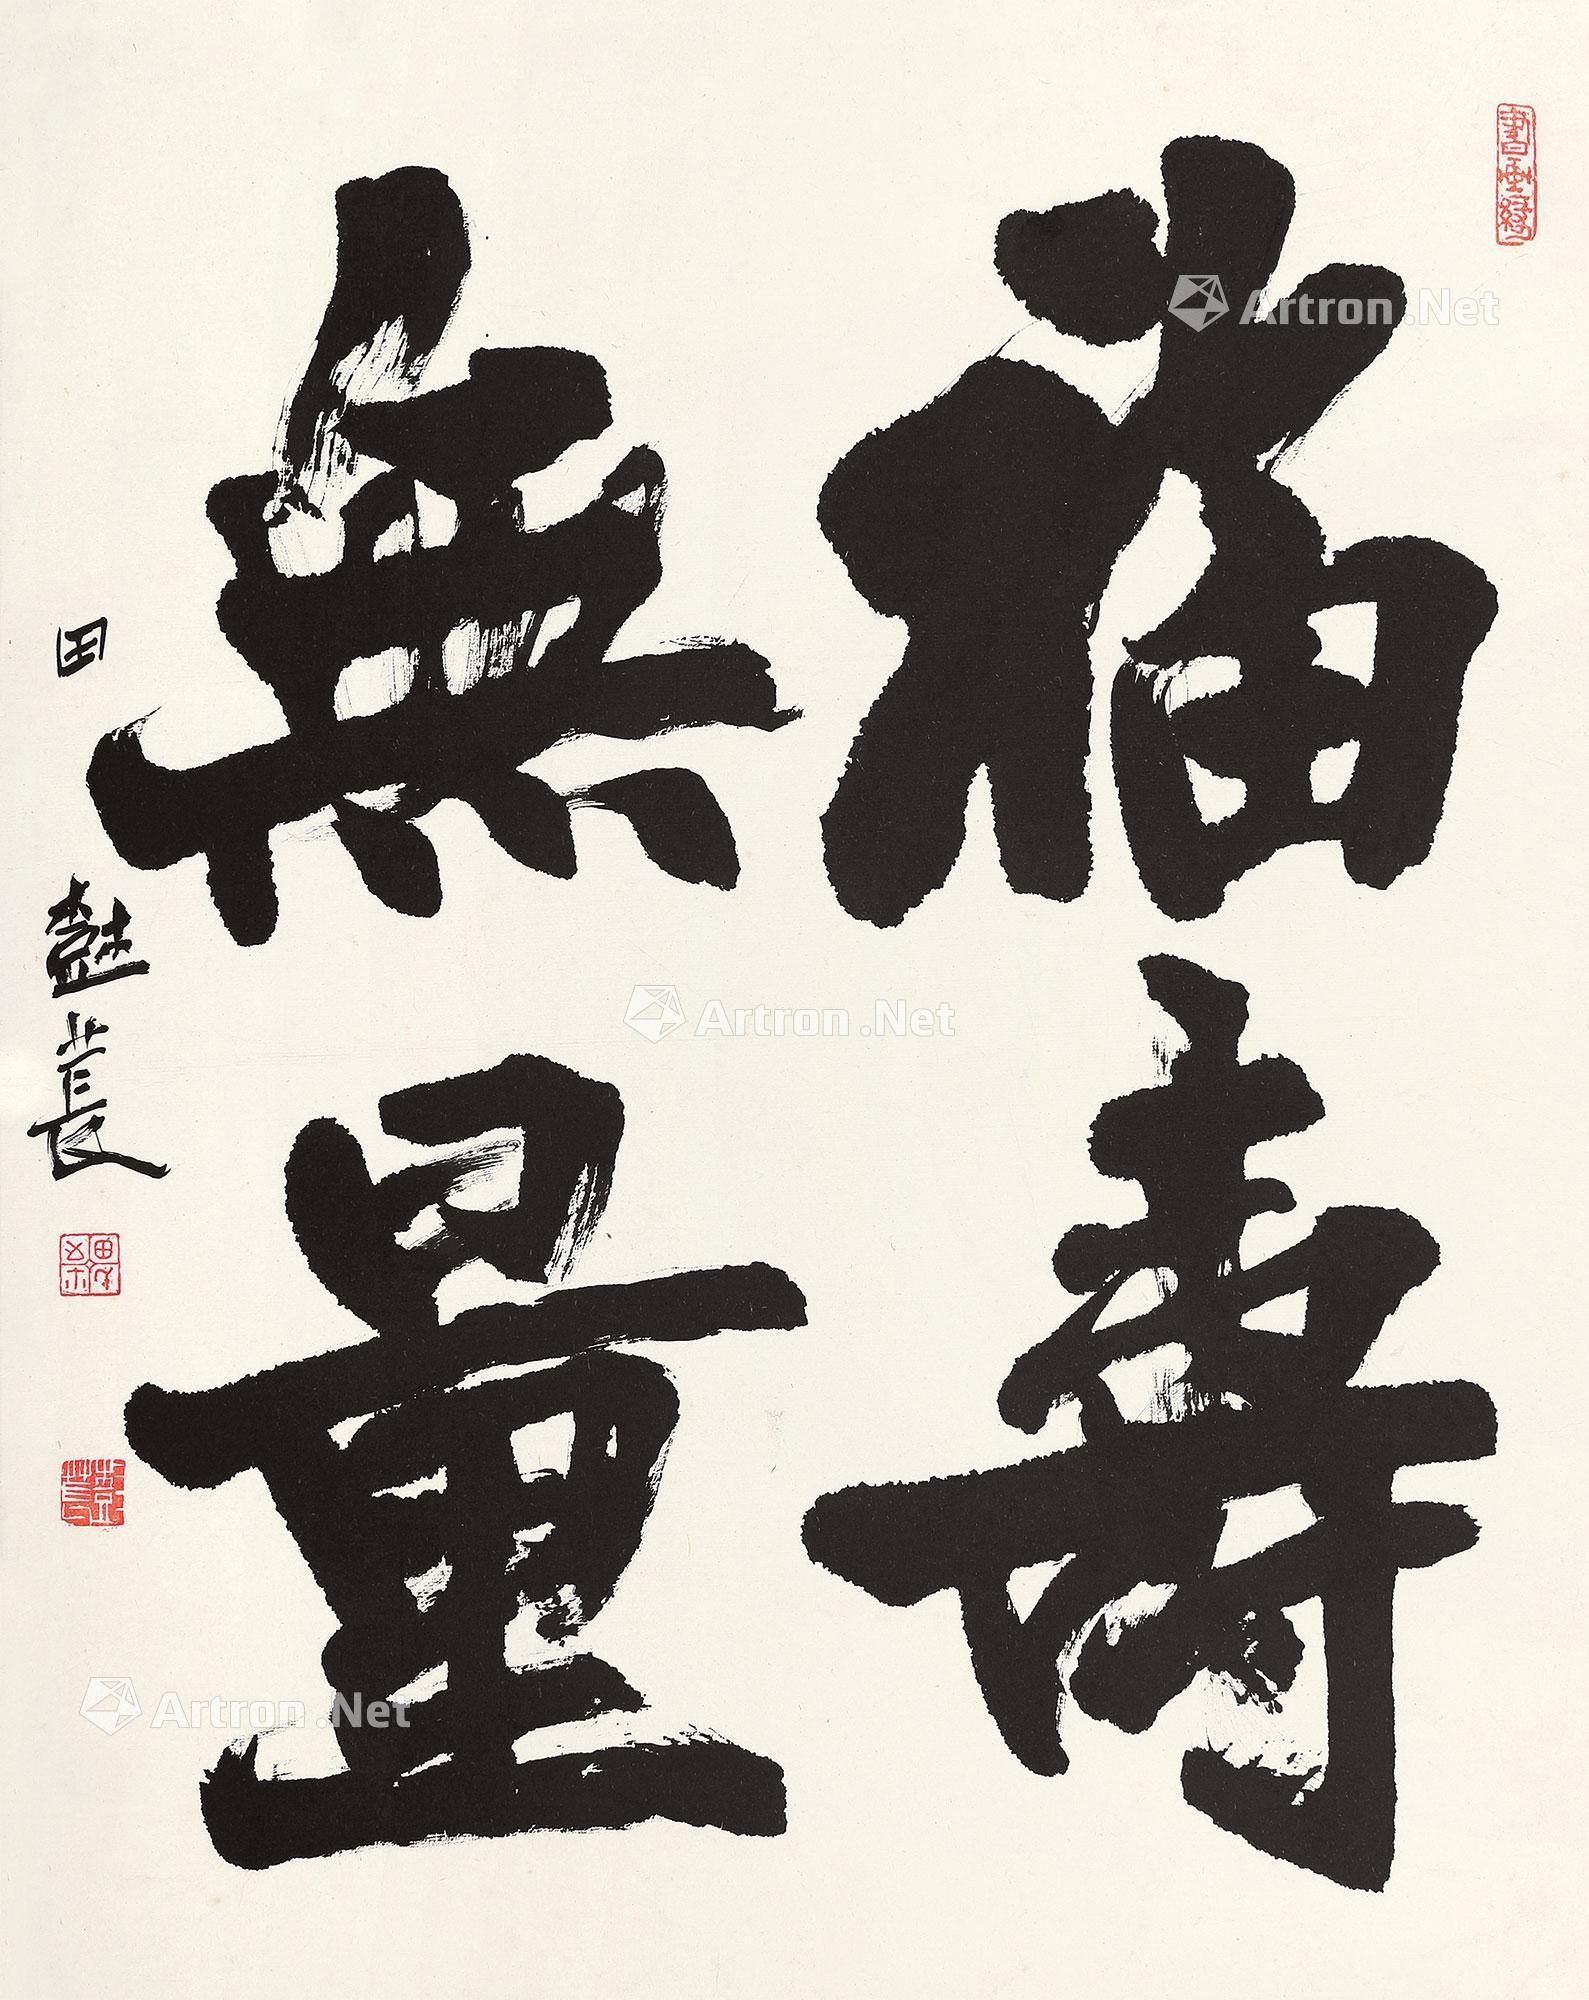 福壽
無量
田樹萇
Artron.Net
Artron.Net
Artron.Net